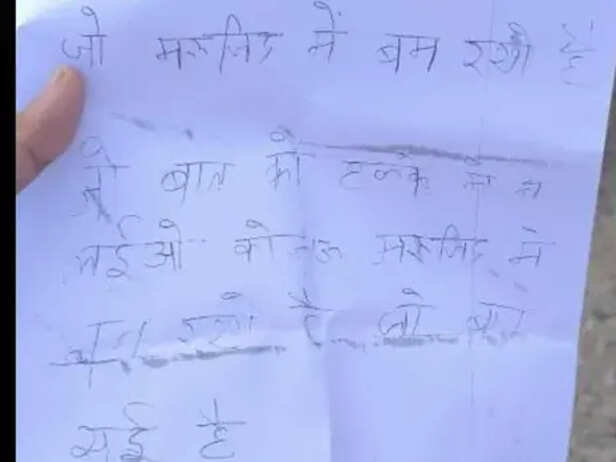 जो मस्जिद में बम रखो है
जो बात को हलके मे न
लईओ मस्जिद मे
बम रखो है जो बात
सई है